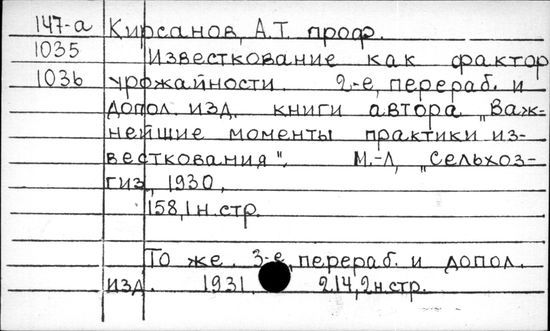 147-а Кирсанов, А.Т. проф.
1035 Известкование как фактор
1036 урожайности. 2-е, перераб. и
допол. изд. книги автора „Важ-
нейшие моменты практики из-
весткования". М.-Л, „Сельхоз-
гиз, 1930,
158,1 н.стр.
То же. 3-е, перераб. и допол.
изд. 1931. 214,2н.стр.